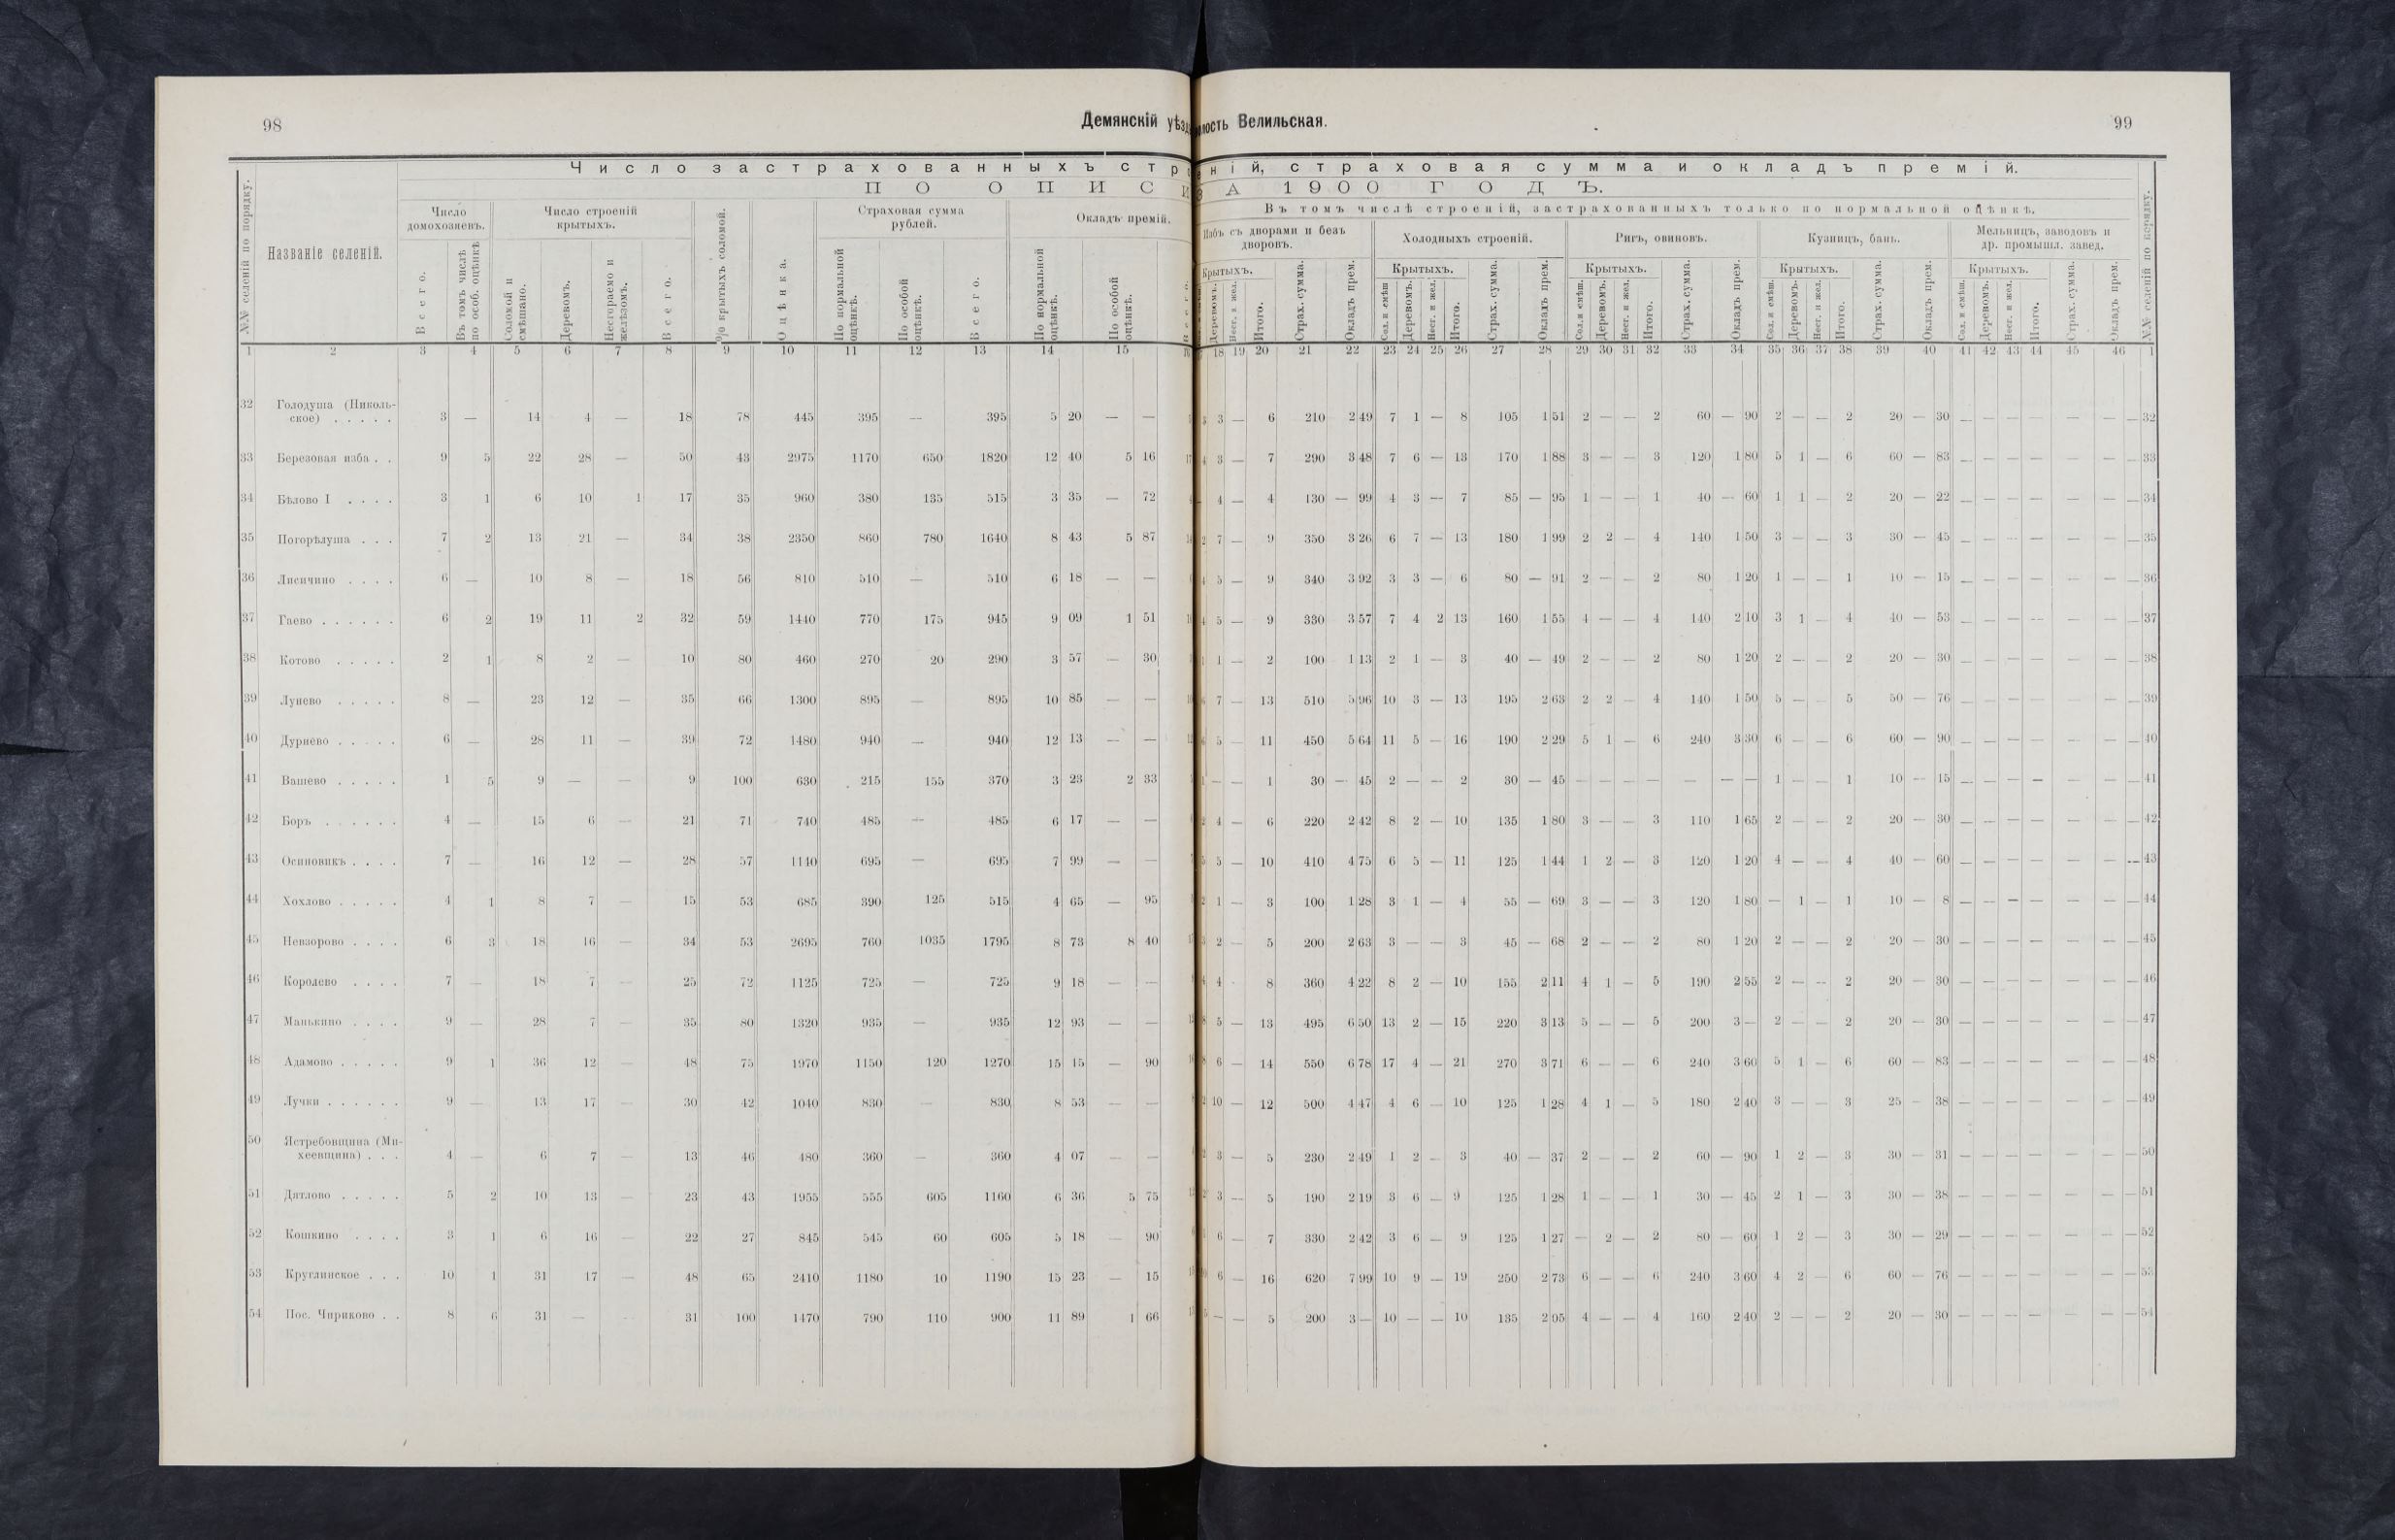 98
Демянскій уѣзд
лость Велильская.
99
Число застрахованныхъ стр
ній, страховая сумма и окладъ премій.
ПО ОПИС
А 1900 ГОДЪ.
№№ селеній по порядку.
Названіе селеній.
Число домохозяевъ.
Число строеній крытыхъ.
% крытыхъ соломой.
Оцѣнка.
Страховая сумма рублей.
Окладъ премій.
Въ томъ числѣ строеній, застрахованныхъ только по нормальной оцѣнкѣ.
Избъ съ дворами и безъ дворовъ.
Холодныхъ строеній.
Ригъ, овиновъ.
Кузницъ, бань.
Мельницъ, заводовъ и др. промышл. завед.
№№ селеній по порядку.
Всего.
Въ томъ числѣ по особ. оцѣнкѣ
Соломой и смѣшано.
Деревомъ.
Несгораемо и желѣзомъ.
Всего.
По нормальной оцѣнкѣ.
По особой оцѣнкѣ.
Всего.
По нормальной оцѣнкѣ.
По особой оцѣнкѣ.
Крытыхъ.
Деревомъ.
Несг. и жел.
Итого.
Страх. сумма.
Окладъ прем.
Крытыхъ.
Сол. и смѣш
Деревомъ.
Несг. и жел.
Итого.
Страх. сумма.
Окладъ прем.
Крытыхъ.
Сол. и смѣш.
Деревомъ.
Несг. и жел.
Итого.
Страх. сумма.
Окладъ прем.
Крытыхъ.
Сол. и смѣш.
Деревомъ.
Несг. и жел.
Итого.
Страх. сумма.
Окладъ прем.
Крытыхъ.
Сол. и смѣш.
Деревомъ.
Несг. и жел.
Итого.
Страх. сумма.
Окладъ прем.
1 2 3 4 5 6 7 8 9 10 11 12 13 14 15
18 19 20 21 22 23 24 25 26 27 28 29 30 31 32 33 34 35 36 37 38 39 40 41 42 43 44 45 46 1
32 Голодуша (Николь-
ское) . . . . . 3 — 14 4 — 18 78 445 395 — 395 5 20 — —
3 — 6 210 2 49 7 1 — 8 105 1 51 2 — — 2 60 — 90 2 — — 2 20 — 30 — — — — — — — 32
33 Березовая изба . . 9 5 22 28 — 50 43 2975 1170 650 1820 12 40 5 16
4 3 — 7 290 3 48 7 6 — 13 170 1 88 3 — — 3 120 1 80 5 1 — 6 60 — 83 — — — — — — — 33
34 Бѣлово I . . . . 3 1 6 10 1 17 35 960 380 135 515 3 35 — 72
4 — 4 130 — 99 4 3 — 7 85 — 95 1 — — 1 40 — 60 1 1 — 2 20 — 22 — — — — — — — 34
35 Погорѣлуша . . . 7 2 13 21 — 34 38 2350 860 780 1640 8 43 5 87
2 7 — 9 350 3 26 6 7 — 13 180 1 99 2 2 — 4 140 1 50 3 — — 3 30 — 45 — — — — — — — 35
36 Лисичино . . . . 6 — 10 8 — 18 56 810 510 — 510 6 18 — —
4 5 — 9 340 3 92 3 3 — 6 80 — 91 2 — — 2 80 1 20 1 — — 1 10 — 15 — — — — — — — 36
37 Гаево . . . . . . 6 2 19 11 2 32 59 1440 770 175 945 9 09 1 51
4 5 — 9 330 3 57 7 4 2 13 160 1 55 4 — — 4 140 2 10 3 1 — 4 40 — 53 — — — — — — — 37
38 Котово . . . . . 2 1 8 2 — 10 80 460 270 20 290 3 57 — 30
1 1 — 2 100 1 13 2 1 — 3 40 — 49 2 — — 2 80 1 20 2 — — 2 20 — 30 — — — — — — — 38
39 Лунево . . . . . 8 — 23 12 — 35 66 1300 895 — 895 10 85 — —
6 7 — 13 510 5 96 10 3 — 13 195 2 63 2 2 — 4 140 1 50 5 — — 5 50 — 76 — — — — — — — 39
40 Дурнево . . . . . 6 — 28 11 — 39 72 1480 940 — 940 12 13 — —
6 5 — 11 450 5 64 11 5 — 16 190 2 29 5 1 — 6 240 3 30 6 — — 6 60 — 90 — — — — — — — 40
41 Вашево . . . . . 1 5 9 — — 9 100 630 215 155 370 3 23 2 33
1 — — 1 30 — 45 2 — — 2 30 — 45 — — — — — — — 1 — — 1 10 — 15 — — — — — — — 41
42 Боръ . . . . . . 4 — 15 6 — 21 71 740 485 — 485 6 17 — —
2 4 — 6 220 2 42 8 2 — 10 135 1 80 3 — — 3 110 1 65 2 — — 2 20 — 30 — — — — — — — 42
43 Осиновикъ . . . . 7 — 16 12 — 28 57 1140 695 — 695 7 99 — —
5 5 — 10 410 4 75 6 5 — 11 125 1 44 1 2 — 3 120 1 20 4 — — 4 40 — 60 — — — — — — — 43
44 Хохлово . . . . . 4 1 8 7 — 15 53 685 390 125 515 4 65 — 95
2 1 — 3 100 1 28 3 1 — 4 55 — 69 3 — — 3 120 1 80 — 1 — 1 10 — 8 — — — — — — — 44
45 Невзорово . . . . 6 3 18 16 — 34 53 2695 760 1035 1795 8 73 8 40
3 2 — 5 200 2 63 3 — — 3 45 — 68 2 — — 2 80 1 20 2 — — 2 20 — 30 — — — — — — — 45
46 Королево . . . . 7 — 18 7 — 25 72 1125 725 — 725 9 18 — —
4 4 - 8 360 4 22 8 2 — 10 155 2 11 4 1 — 5 190 2 55 2 — — 2 20 — 30 — — — — — — — 46
47 Манькино . . . . 9 — 28 7 — 35 80 1320 935 — 935 12 93 — —
8 5 — 13 495 6 50 13 2 — 15 220 3 13 5 — — 5 200 3 — 2 — — 2 20 — 30 — — — — — — — 47
48 Адамово . . . . . 9 1 36 12 — 48 75 1970 1150 120 1270 15 15 — 90
8 6 — 14 550 6 78 17 4 — 21 270 3 71 6 — — 6 240 3 60 5 1 — 6 60 — 83 — — — — — — — 48
49 Лучки . . . . . . 9 — 13 17 — 30 42 1040 830 — 830 8 53 — —
2 10 — 12 500 4 47 4 6 — 10 125 1 28 4 1 — 5 180 2 40 3 — — 3 25 — 38 — — — — — — — 49
50 Ястребовщина (Ми-
хеевщина) . . . 4 — 6 7 — 13 46 480 360 — 360 4 07 — —
2 3 — 5 230 2 49 1 2 — 3 40 — 37 2 — — 2 60 — 90 1 2 — 3 30 — 31 — — — — — — — 50
51 Дятлово . . . . . 5 2 10 13 — 23 43 1955 555 605 1160 6 36 5 75
2 3 — 5 190 2 19 3 6 — 9 125 1 28 1 — — 1 30 — 45 2 1 — 3 30 — 38 — — — — — — — 51
52 Кошкино . . . . 3 1 6 16 — 22 27 845 545 60 605 5 18 — 90
6 — 7 330 2 42 3 6 — 9 125 1 27 — 2 — 2 80 — 60 1 2 — 3 30 — 29 — — — — — — — 52
53 Круглинское . . . 10 1 31 17 — 48 65 2410 1180 10 1190 15 23 — 15
6 — 16 620 7 99 10 9 — 19 250 2 73 6 — — 6 240 3 60 4 2 — 6 60 — 76 — — — — — — — 53
54 Пос. Чириково . . 8 6 31 — — 31 100 1470 790 110 900 11 89 1 66
5 — — 5 200 3 — 10 — — 10 135 2 05 4 — — 4 160 2 40 2 — — 2 20 — 30 — — — — — — — 54